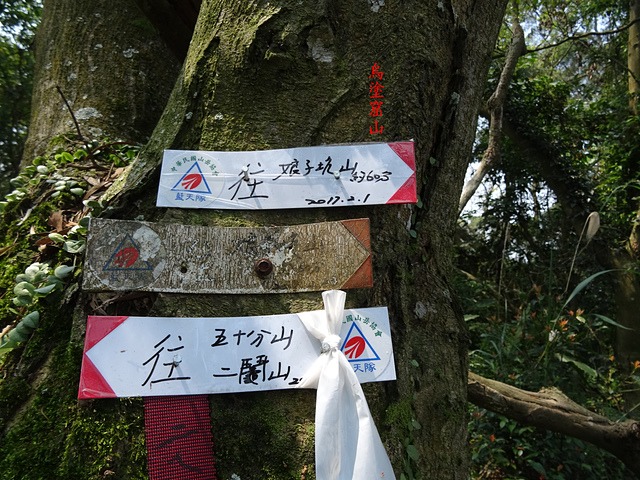 烏塗窟山
中華民國山岳協會
藍天隊
往
娘子坑山
2017.2.1
往
五十分山
二鬮山
國山岳協會
天隊